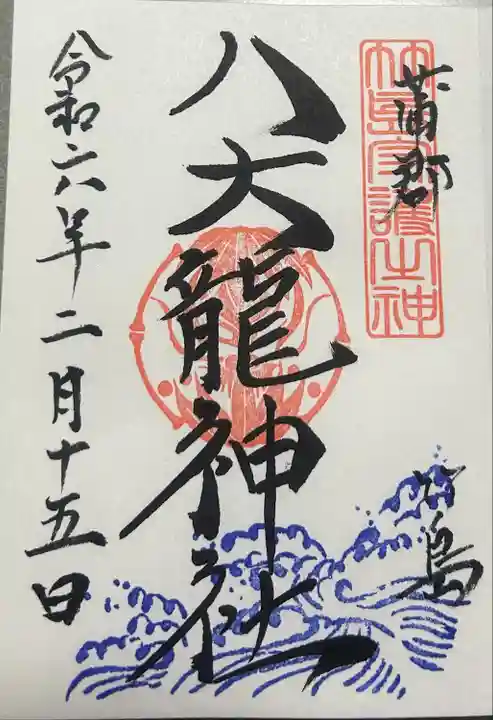 蒲郡
竹島
竹島守護之神
八大龍神社
令和六年二月十五日